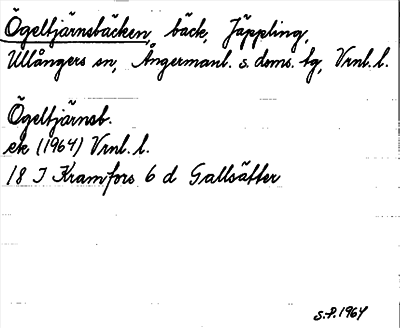 Ögeltjärnsbäcken, bäck, Jäppling,
Ullångers sn, Ångermanl. s. doms. tg, Vrnl. l.
Ögeltjärnsb.
ek (1964) Vrnl. l.
18 I Kramfors 6 d Gallsätter
S.P. 1964